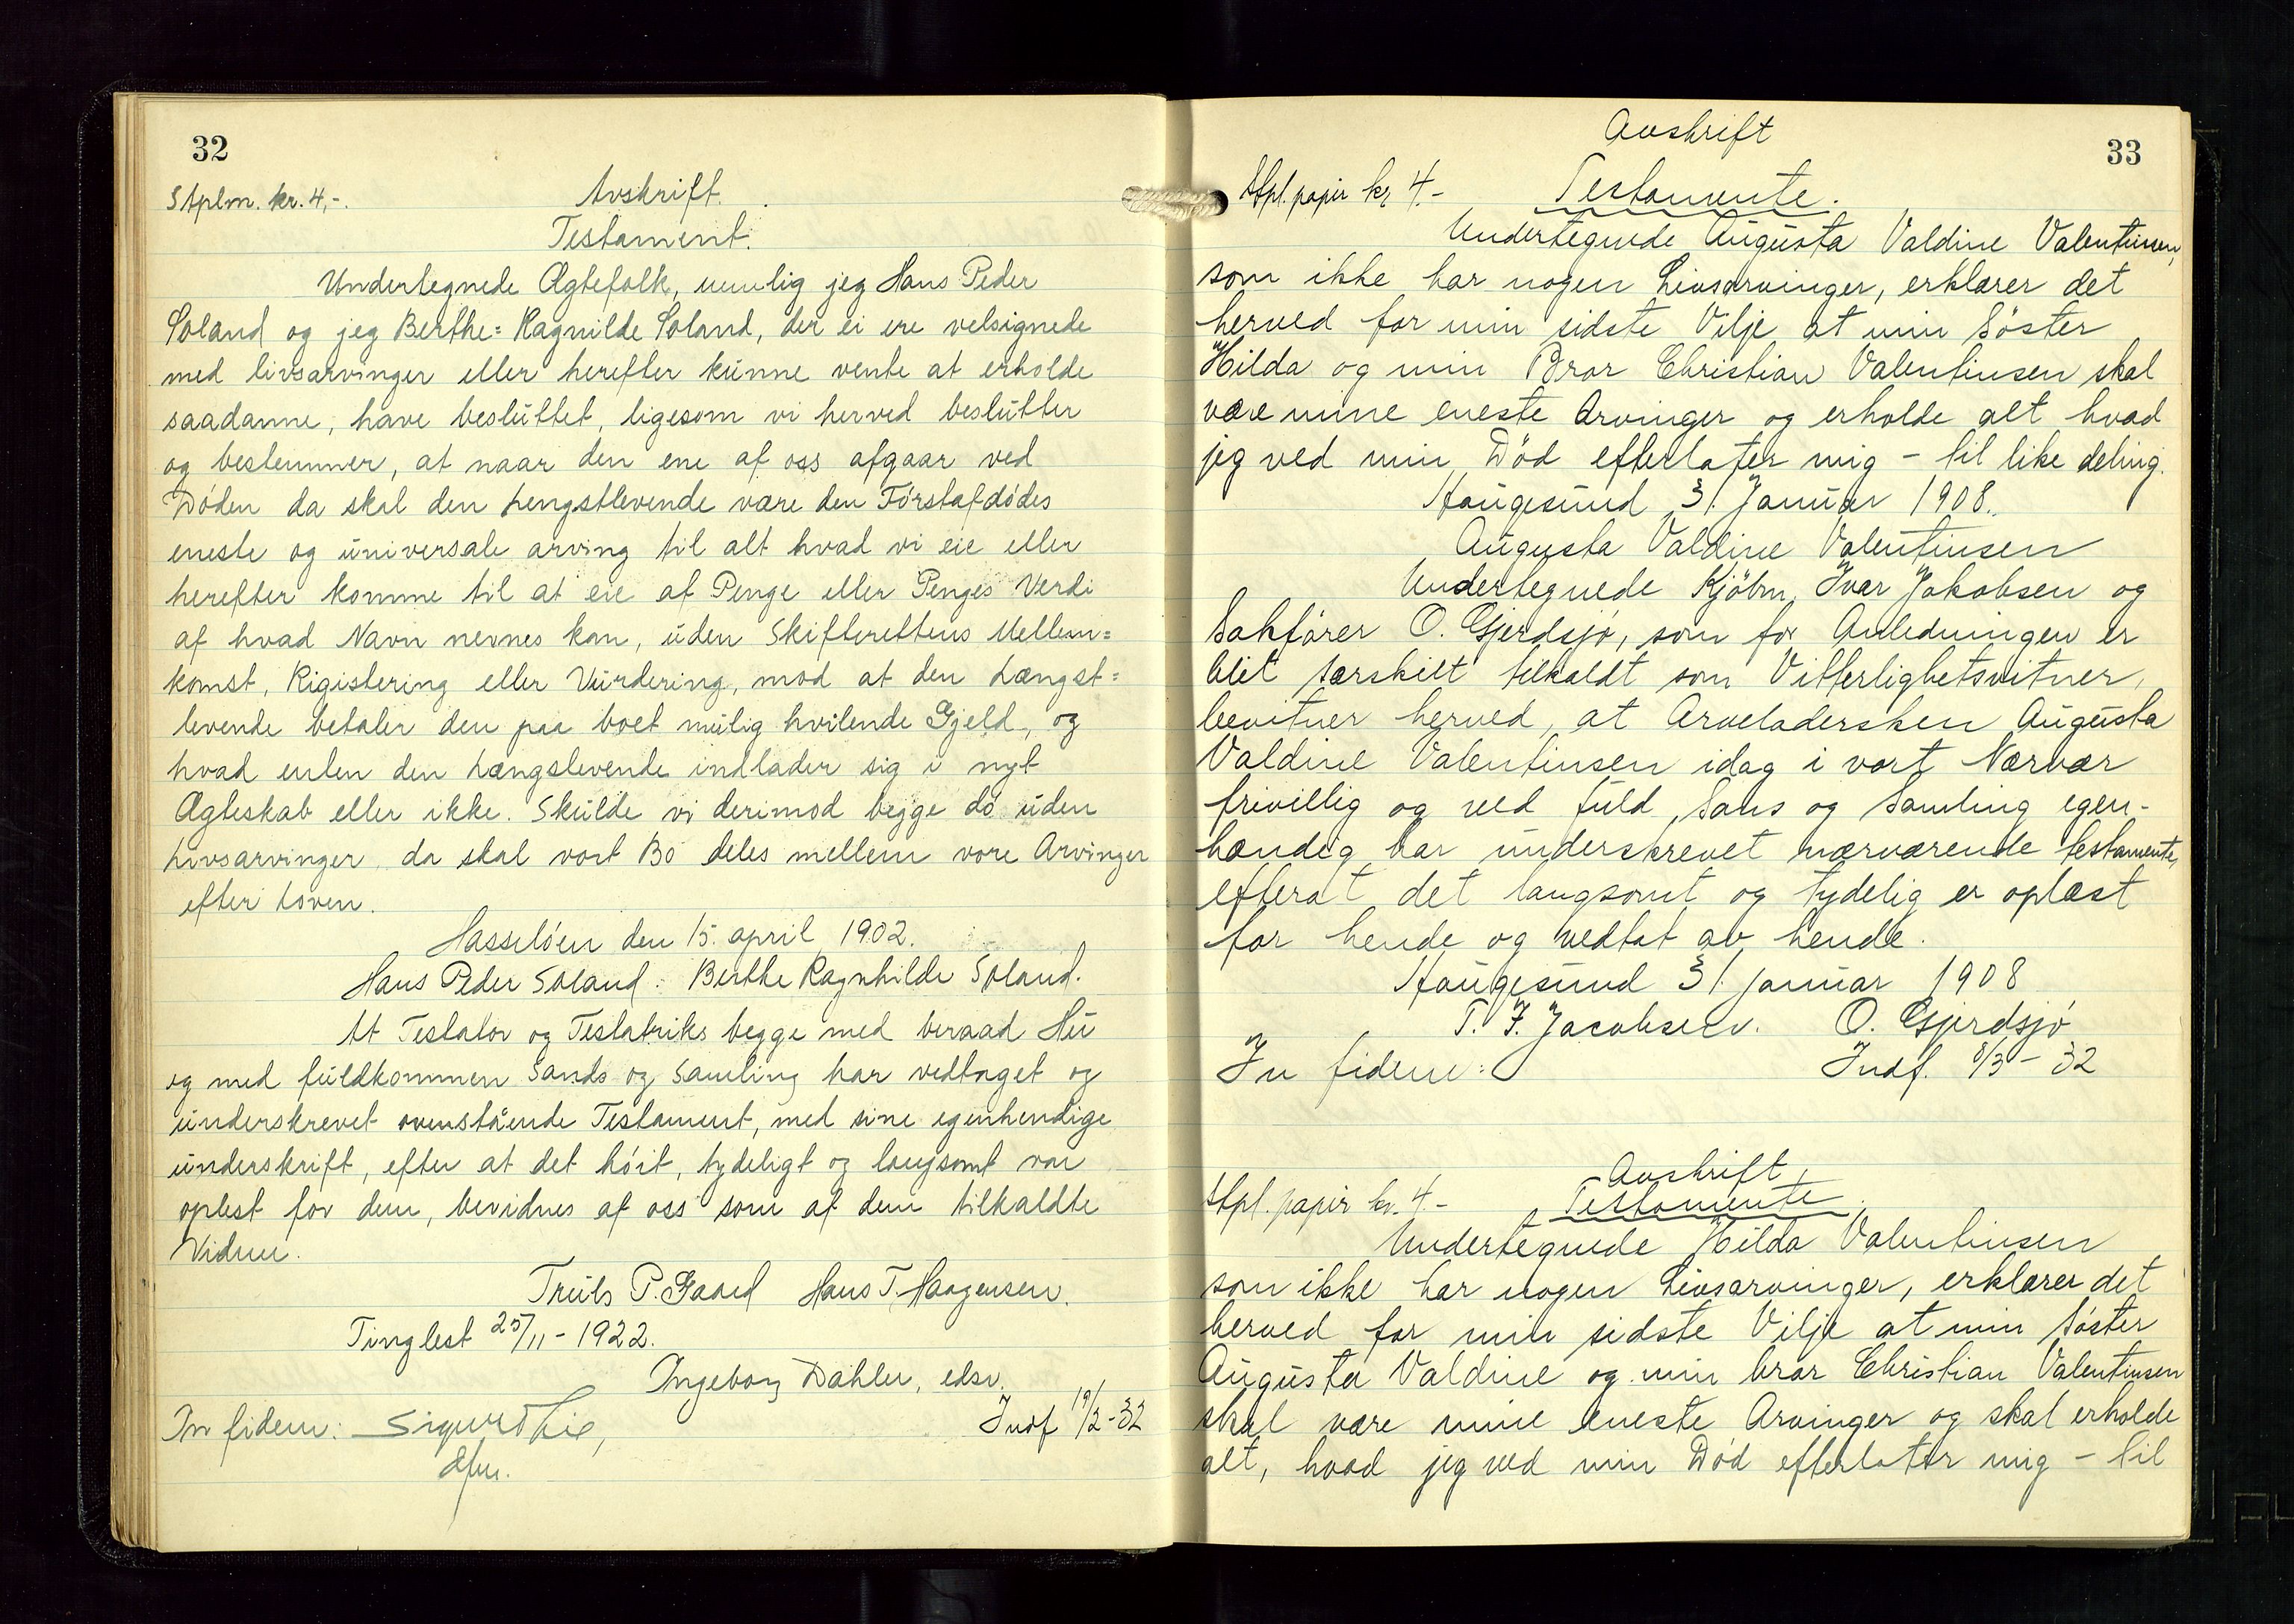 32
Stplm. kr. 4,-.
Avskrift.
Testament.
Undertegnede Ægtefolk, nemlig jeg Hans Peder
Soland og jeg Berthe= Ragnilde Soland, der ei ere velsignede
med livsarvinger eller herefter kunne vente at erholde
saadanne, have besluttet, ligesom vi herved beslutter
og bestemmer, at naar den ene af oss afgaar ved
Døden da skal den Lengstlevende være den Førstafdødes
eneste og universale arving til alt hvad vi eie eller
herefter komme til at eie af Penge eller Penges Verdi
af hvad Navn nevnes kan, uden Skifterettens Mellem=
komst, Rigistering eller Vurdering, mod at den Længst=
levende betaler den paa boet mulig hvilende Gjeld, og
hvad enten den Længslevende indlader sig i nyt
Ægteskab eller ikke. Skulde vi derimod begge dø uden
Livsarvinger da skal vort Bo deles mellem vore Arvinger
efter Loven.
Hasseløen den 15. april 1902.
Hans Peder Soland. Berthe Ragnhilde Soland.
At Testator og Testatriks begge med beraad Hu
og med fuldkommen Sands og Samling har vedtaget og
underskrevet ovenstående Testament, med sine egenhendige
underskrift, efter at det høit, tydeligt og langsomt var
oplest for dem, bevidnes af oss som af dem tilkaldte
Vidner.
Truls P. Gaard Hans T. Haagensen.
Tinglest 25/11-1922.
Ingeborg Dahler, edsv.
In fidem: Sigurd Lie,
Indf 19/2-32
dfm.
33
Avskrift
Stpl. papir kr 4.-
Testamente.
Undertegnede Augusta Valdine Valentinsen,
som ikke har nogen Livsarvinger, erklærer det
herved for min sidste Vilje at min Søster
Hilda og min Bror Christian Valentinsen skal
være mine eneste Arvinger og erholde alt hvad
jeg ved min Død efterlater mig - til like deling.
Haugesund 31. Januar 1908.
Augusta Valdine Valentinsen
Undertegnede Kjøbm. Ivar Jakobsen og
Sakfører O. Gjerdsjø, som for Anledningen er
blit særskilt tilkaldt som Vitterlighetsvitner,
bevitner herved, at Arveladersken Augusta
Valdine Valentinsen idag i vort Nærvær
frivillig og ved fuld Sans og Samling egen-
hændig har underskrevet nærværende testamente,
efterat det langsomt og tydelig er oplæst
for hende og vedtat av hende.
Haugesund 31. januar 1908
T. I. Jacobsen. O. Gjerdsjø
In fidem:
Indf. 8/3-32
Avskrift
Stpl. papir kr. 4.-
Testamente.
Undertegnede Hilda Valentinsen
som ikke har nogen Livsarvinger, erklærer det
herved for min sidste Vilje at min Søster
Augusta Valdine og min bror Christian Valentinsen
skal være mine eneste Arvinger og skal erholde
alt, hvad jeg ved min Død efterlater mig - til